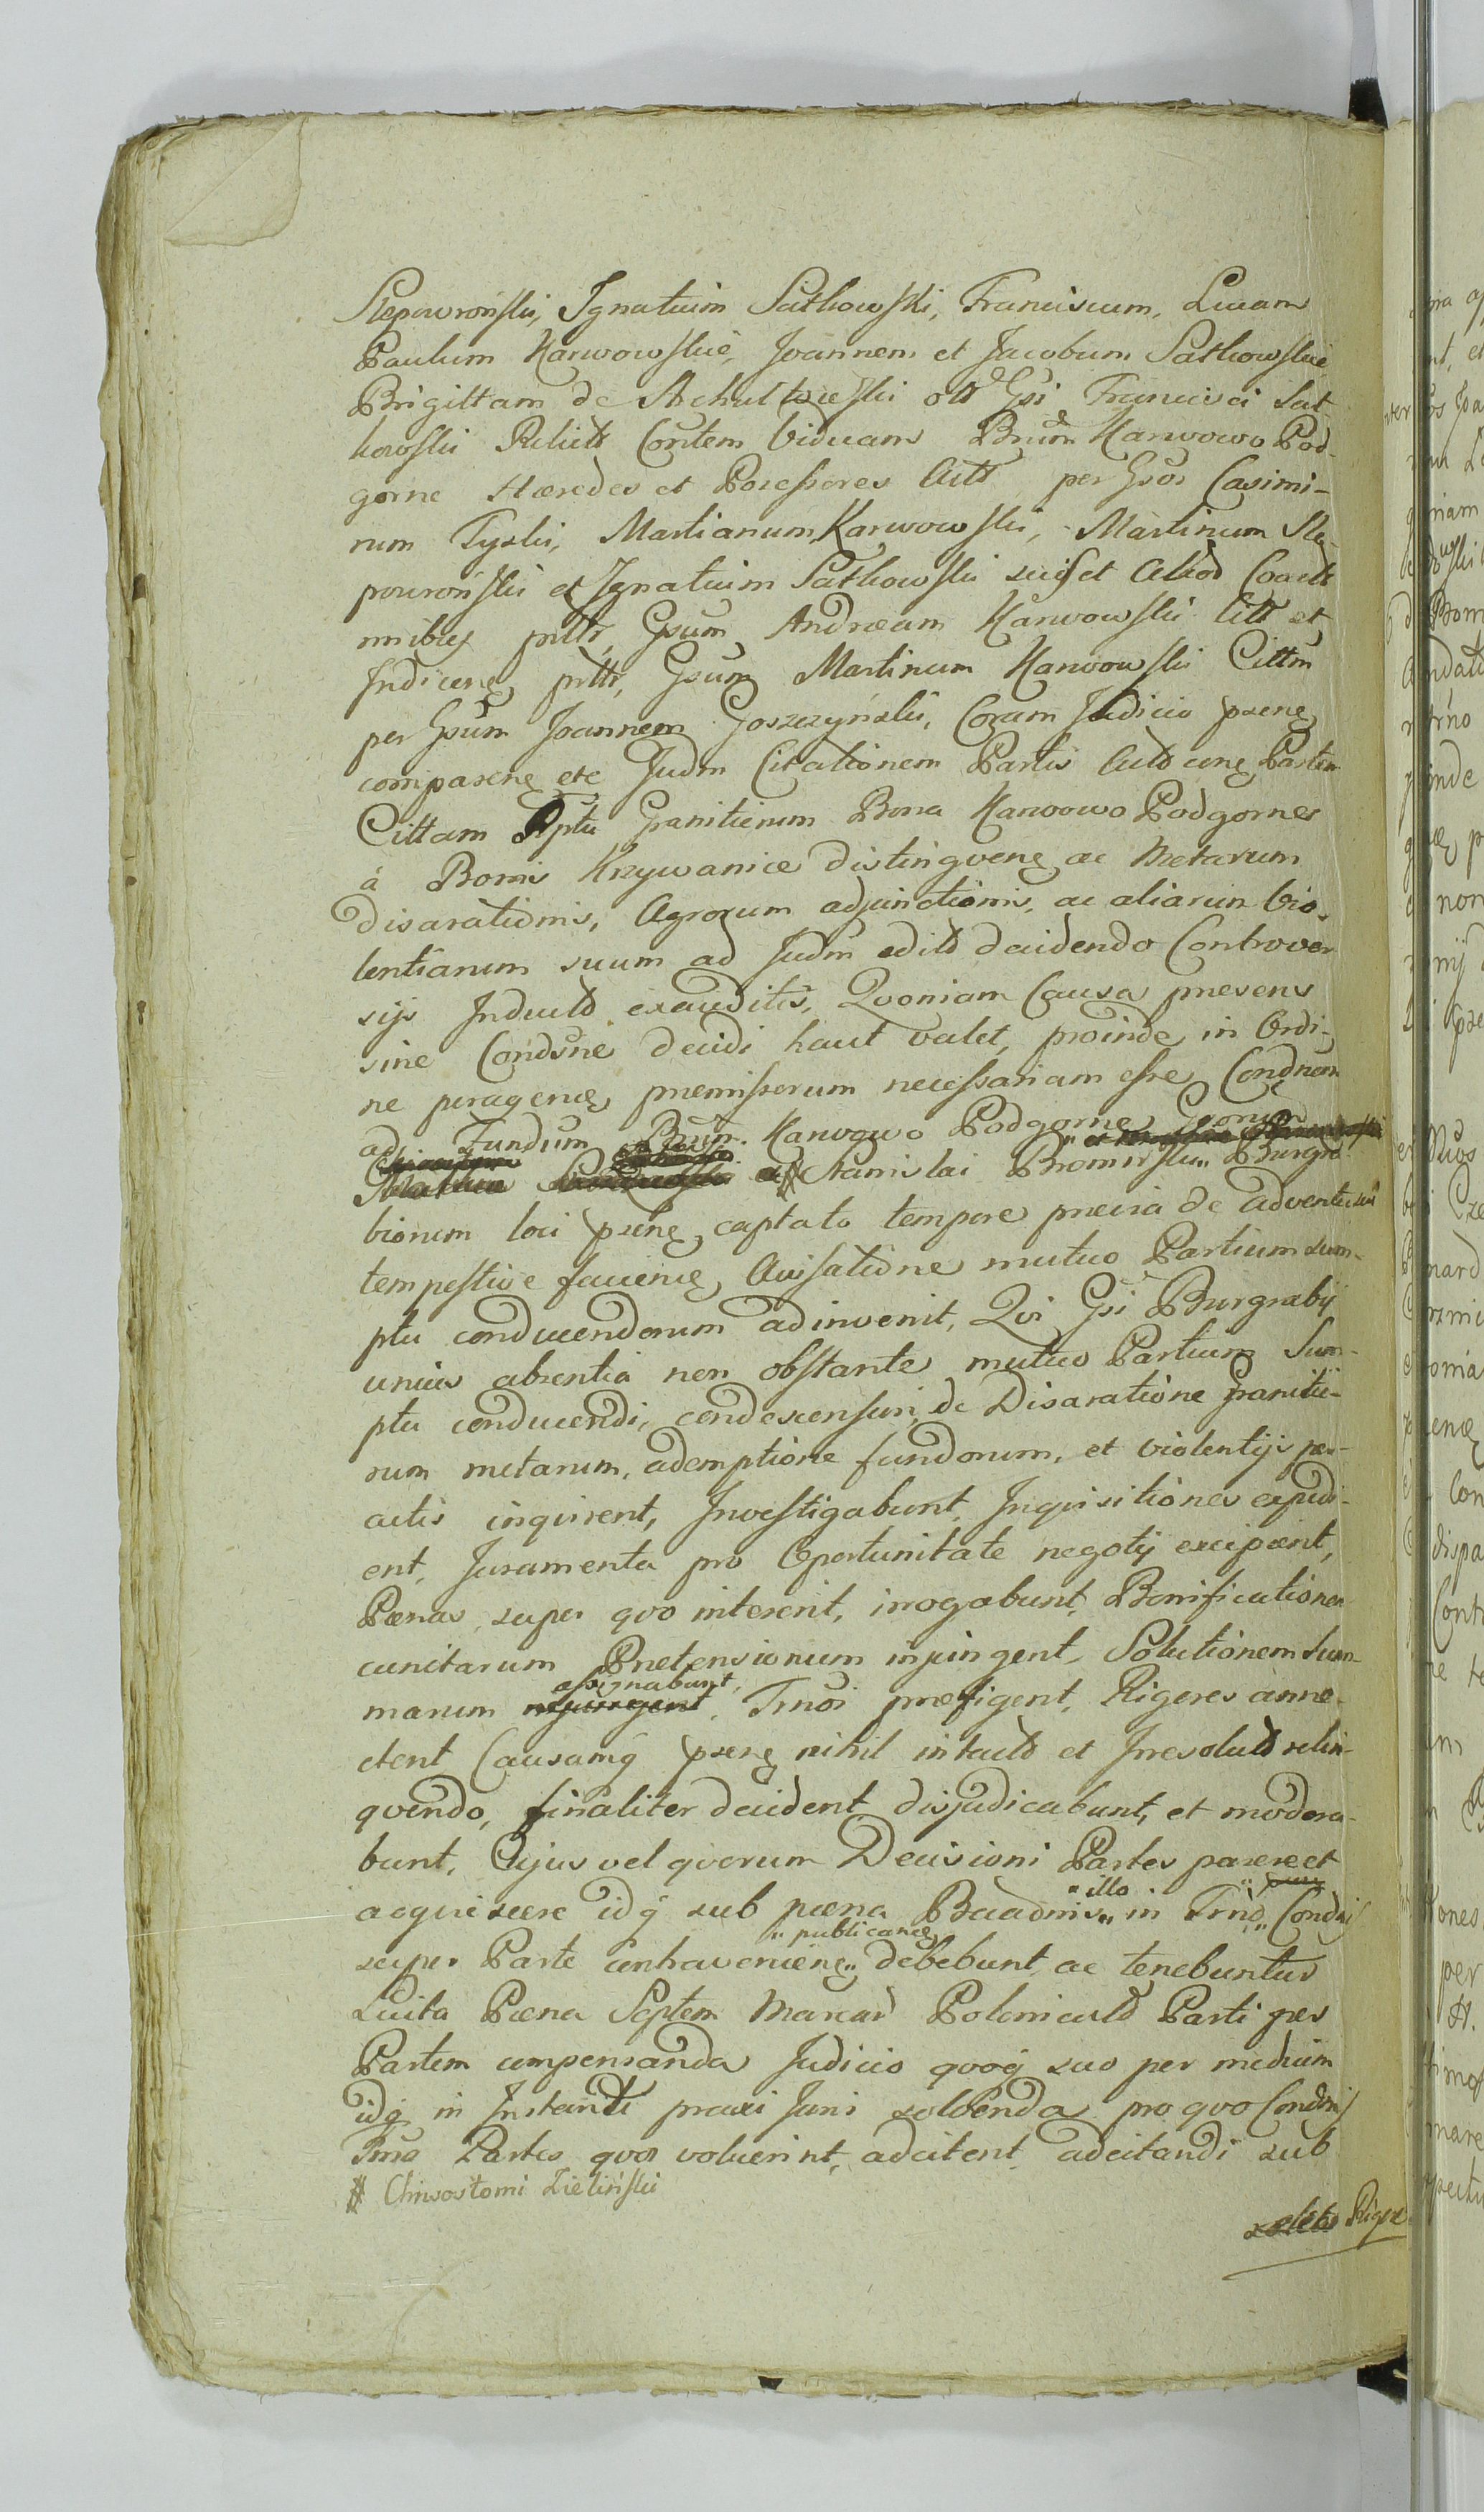 Stepowroński, Ignatium Satkowski, Franciscum, Lucam
Paulum Karwowskie, Joannem et Jacobum Satkowskie
Brigittam de olt Gsi Francisci Sat-
kowski Relictã Consortem Viduam Bnrum Karwowo Pod-
gorne Hæredes et Possessores Actt per Gsos Casimi-
rum Tyski, Martianum Karwowski, Martinum Ste-
powroński et Ignatium Satkowski
pntt, Gsum Andræam Karwowski Citt et
pntt, Gsum Martinum Karwowski Cittm
per Gsum Joannem Goszczyński, Coram Judicio psene
comparene etc Judm Citationem Partis Actt cone Partem
Cittam Rptu Granitierum Bona Karwowo Podgorne
à Bonis Krzywanice distingvene ac Metarum
disarationis, Agrorum adjunctionis, ac aliarum vio-
lentiarum suum ad Judm editt decidendo Controver-
sijs Inductt exauditis, Qvoniam Causa presens
sine Condsne decidi haut valet, proinde in Ordi-
ne peragene premissorum necessariam esse Condnem
ad Fundum Bnrum Karwowo Podgorne Gsorum
# Stanislai Bromirski Burgra-
biorum loci psene captato tempore previa de adventu sui
tempestive faciene Avisatione mutuo Partium sum-
ptu conducendorum adinvenit, Qvi Gsi Burgrabij
unius absentia non obstante mutuo Partium Sum-
ptu conducendi, condescensuri, de Disaratione Granitie-
rum metarum, ademptione fundorum, et violentijs per-
actis inqvirent, Investigabunt, Inqvisitiones expedi-
ent, Juramenta pro Oportunitate negotij excipient,
Pœnas super qvo intererit, irrogabunt, Bonificationem
cunctarum Pretensionum injungent, Solutionem Sum-
assignabunt,
marum injungent, Trnos præfigent, Rigores anne-
ctent Causamq psene nihil intactt et Irresolutt relin-
qvendo, finaliter decident disjudicabunt, et modera-
bunt, Cujus vel qvorum Decisioni Partes parere et
" illo
acqviescere idq sub pœna Baadnis in Trno Condnis
" publicane
super Parte contraveniene debebunt ac tenebuntur
Luita Pœna Septem Marcar Polonicalt Parti per
Partem compensanda Judicio qvoq suo per medium
idq in Instanti praxi Juris solvenda pro qvo Condnis
Trno Partes qvos voluerint, adcitent adcitandi sub
# Chrisostomi Zieliński
Rigore